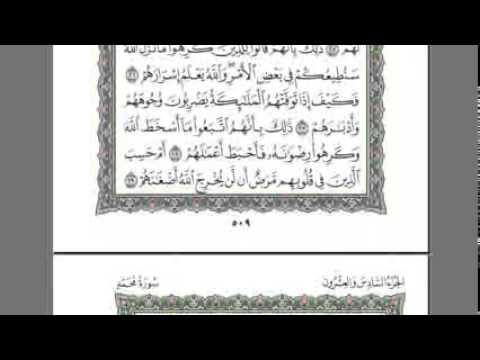 لَهُمْ ۝٢٥ ذَٰلِكَ بِأَنَّهُمْ قَالُوا۟ لِلَّذِينَ كَرِهُوا۟ مَا نَزَّلَ ٱللَّهُ
سَنُطِيعُكُمْ فِى بَعْضِ ٱلْأَمْرِ ۖ وَٱللَّهُ يَعْلَمُ إِسْرَارَهُمْ ۝٢٦
فَكَيْفَ إِذَا تَوَفَّتْهُمُ ٱلْمَلَـٰٓئِكَةُ يَضْرِبُونَ وُجُوهَهُمْ
وَأَدْبَـٰرَهُمْ ۝٢٧ ذَٰلِكَ بِأَنَّهُمُ ٱتَّبَعُوا۟ مَآ أَسْخَطَ ٱللَّهَ
وَكَرِهُوا۟ رِضْوَٰنَهُۥ فَأَحْبَطَ أَعْمَـٰلَهُمْ ۝٢٨ أَمْ حَسِبَ
ٱلَّذِينَ فِى قُلُوبِهِم مَّرَضٌ أَن لَّن يُخْرِجَ ٱللَّهُ أَضْغَـٰنَهُمْ ۝٢٩
٥٠٩
الجُزْءُ السَّادِسُ وَالعِشْرُونَ
سُورَةُ مُحَمَّد